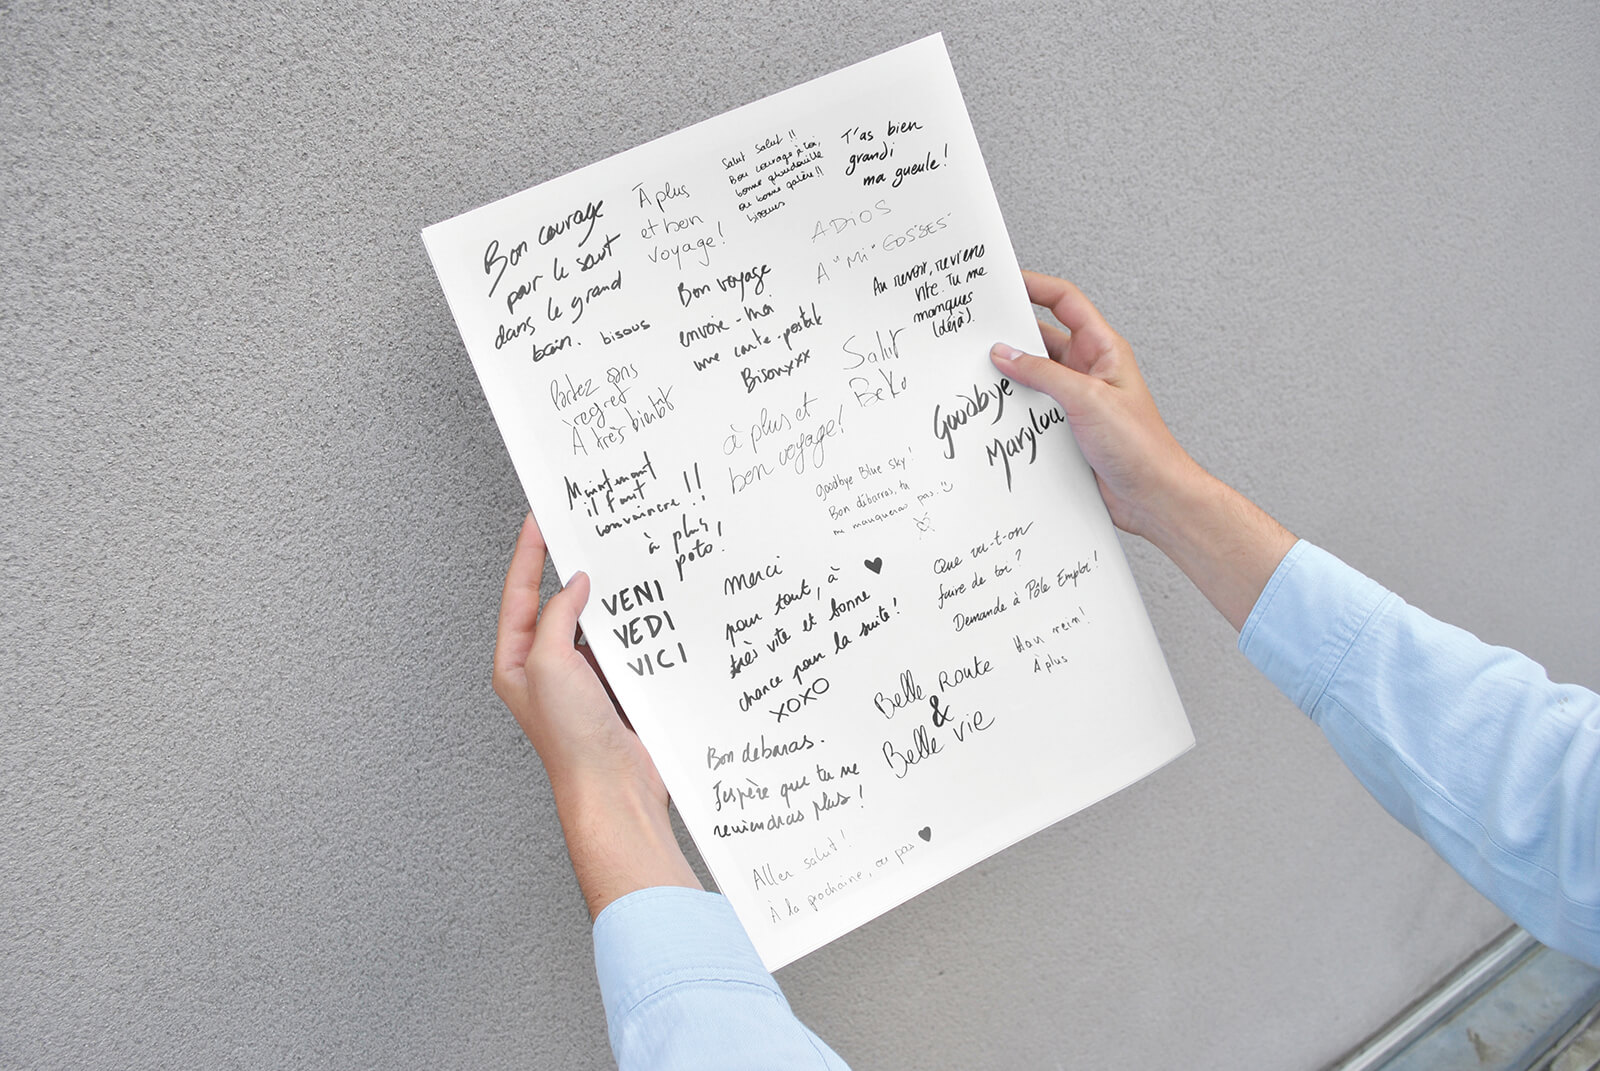 Bon courage
pour le saut
dans le grand
bain. bisous
À plus
et bon
voyage!
Salut Salut !!
Bon courage à toi,
bonne
ou bonne galère!!
bisous
T'as bien
grandi
ma gueule!
ADIOS
A "MI" GOSSES
Bon voyage
envoie-moi
une carte-postale
Bisouxxx
Au revoir, reviens
vite. Tu me
manques
(déjà).
Partez sans
regret
À très bientôt
Salut
Beko
à plus et
bon voyage!
Goodbye
Marylou
Maintenant
il faut
convaincre!!
à plus,
poto!
Goodbye Blue Sky!
Bon débarras, tu
me manqueras pas. :)
VENI
VEDI
VICI
Merci
pour tout, à ♥
très vite et bonne
chance pour la suite!
XOXO
Que va-t-on
faire de toi?
Demande à Pôle Emploi!
À plus
Belle Route
&
Belle vie
Bon debarras.
J'espère que tu ne
reviendras plus!
Aller salut!
À la prochaine, ou pas ♥